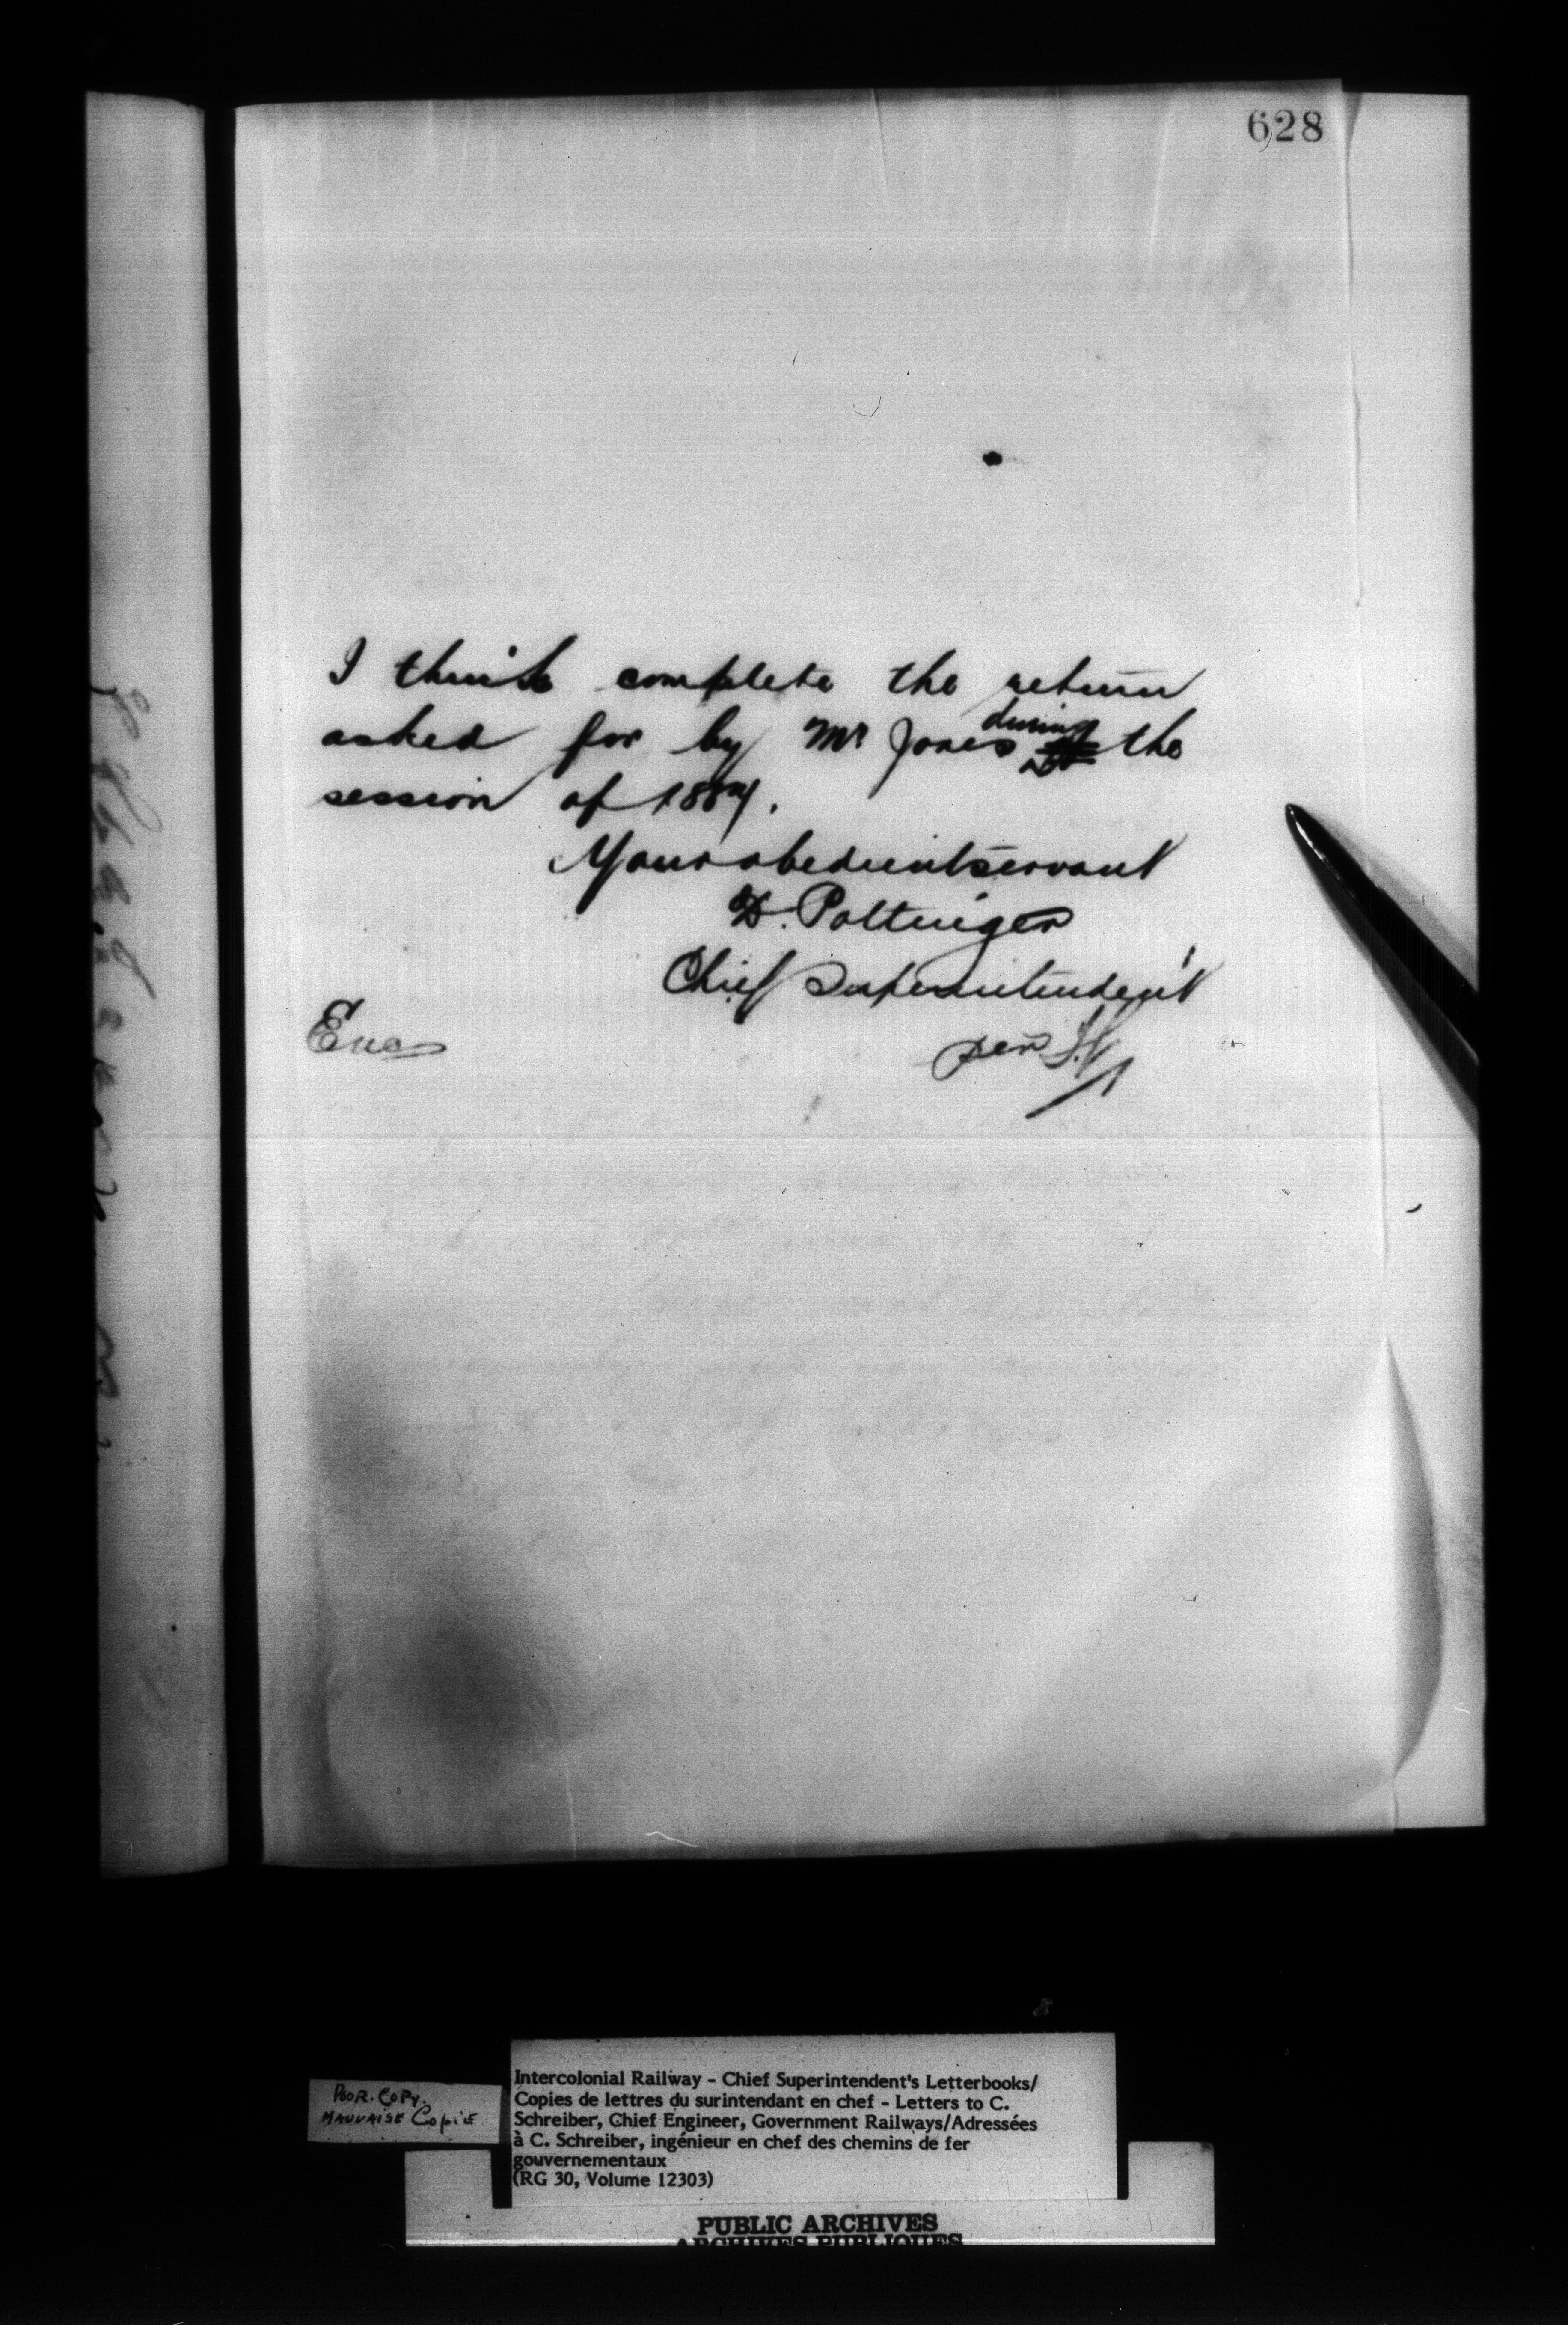 628
I think complete the return
asked for by Mr Jones during the
session of 1884.
Your obedient servant
D. Pottinger
Chief Superintendent
per
Enc
POOR. COPY.
MAUVAISE Copie
Intercolonial Railway - Chief Superintendent's Letterbooks/
Copies de lettres du surintendant en chef - Letters to C.
Schreiber, Chief Engineer, Government Railways/Adressées
à C. Schreiber, ingénieur en chef des chemins de fer
gouvernementaux
(RG 30, Volume 12303)
PUBLIC ARCHIVES
ARCHIVES PUBLIQUES